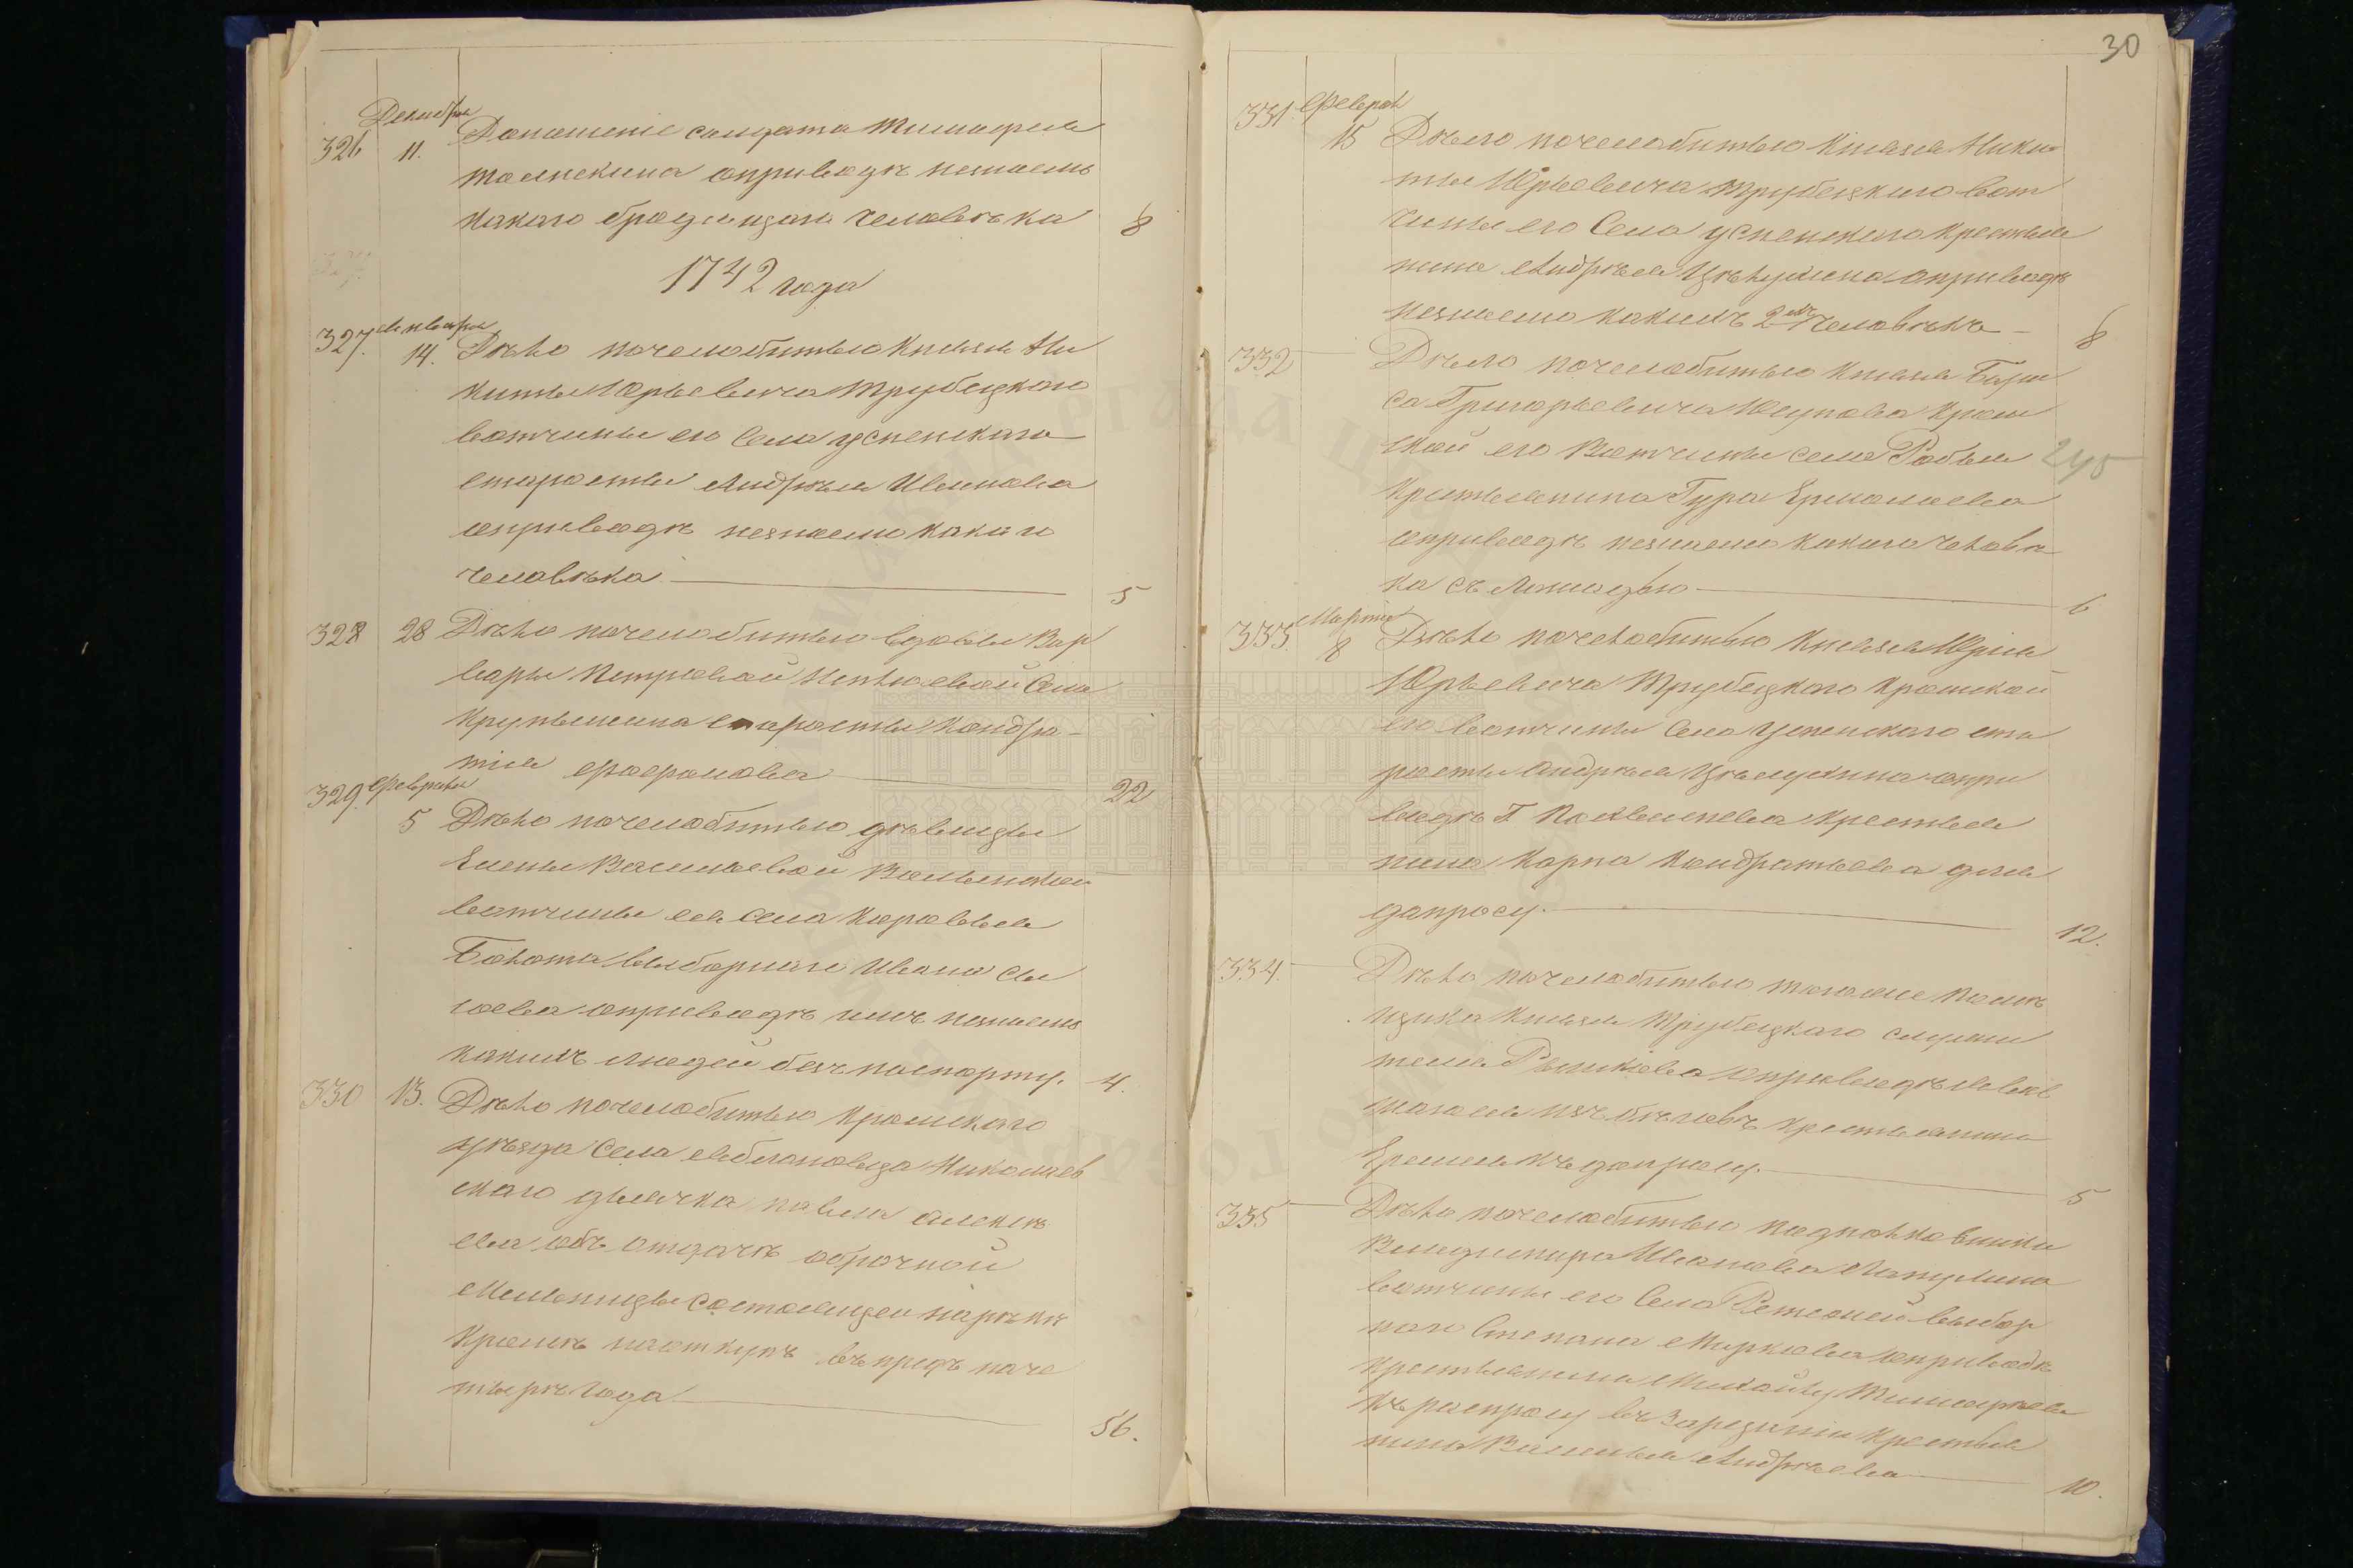 Декабря
326 11. Доношеніе солдата Тимофея
Толпекина оприводѣ незнаемо
какого бродящаго человѣка 8
1742 года
327. Января
14. Дѣло почелобитью Князя Ни
киты Юрьевича Трубецкаго
вотчины его Села Успенскаго
старосты Андрѣя Иванова
оприводѣ незнаемо какаго
человѣка 5
328 28 Дѣло почелобитью вдовы Вар
вары Петровой Села
Крупышина старосты Кондра-
тія Фофонова 22
329. Февраля
5 Дѣло почелобитью дѣвицы
Елены Василевой Волынской
вотчины ея Села Коровья
Болота выборнаго Ивана Сы
соева оприводѣ имъ незнаемо
какихъ людей безъ паспорту. 4.
330 13. Дѣло почелобитью Кромскаго
уѣзда Села Николаев
скаго дьячка павла Алексѣ
ева объ отдачѣ оброчной
Мельницы состоящей нарѣкѣ
Кромѣ наоткупъ впредь поче
тыре года 56.
30
331 Февраля
15 Дѣло почелобитью Князя Ники
ты Юрьевича Трубецкаго вот
чины его Села Успенскаго крестья
нина Андрѣя оприводѣ
незнаемо какихъ 2хъ человѣкъ 8
332 Дѣло почелобитью Князя Бори
са Григорьевича Юсупова Кром
ской его Вотчины села Робья 245
Крестьянина Гура Ермолаева
оприводѣ незнаемо какаго человѣ
ка съ Лошадью 6
333. Марта
8 Дѣло почелобитью Князя Юрія
Юрьевича Трубецкаго Кромской
его вотчины Села Успенскаго ста
росты Андрѣя опри
водѣ Г. крестья
нина Карпа Кондратьева для
допросу. 12.
334. Дѣло почелобитью тогоже помѣ
щика Князя Трубецкаго служи
теля оприводѣ
изъ бѣговъ крестьянина
Еремея къ допросу. 5
335 Дѣло почелобитью подполковника
Владимира Иванова Лопухина
вотчины его Села Ретяжей выбор
наго Степана Маркова оприводѣ
Крестьянина Михайлу Тимофѣева
къ распросу въ зарезаніи крестья
нина Василья Андрѣева 10.